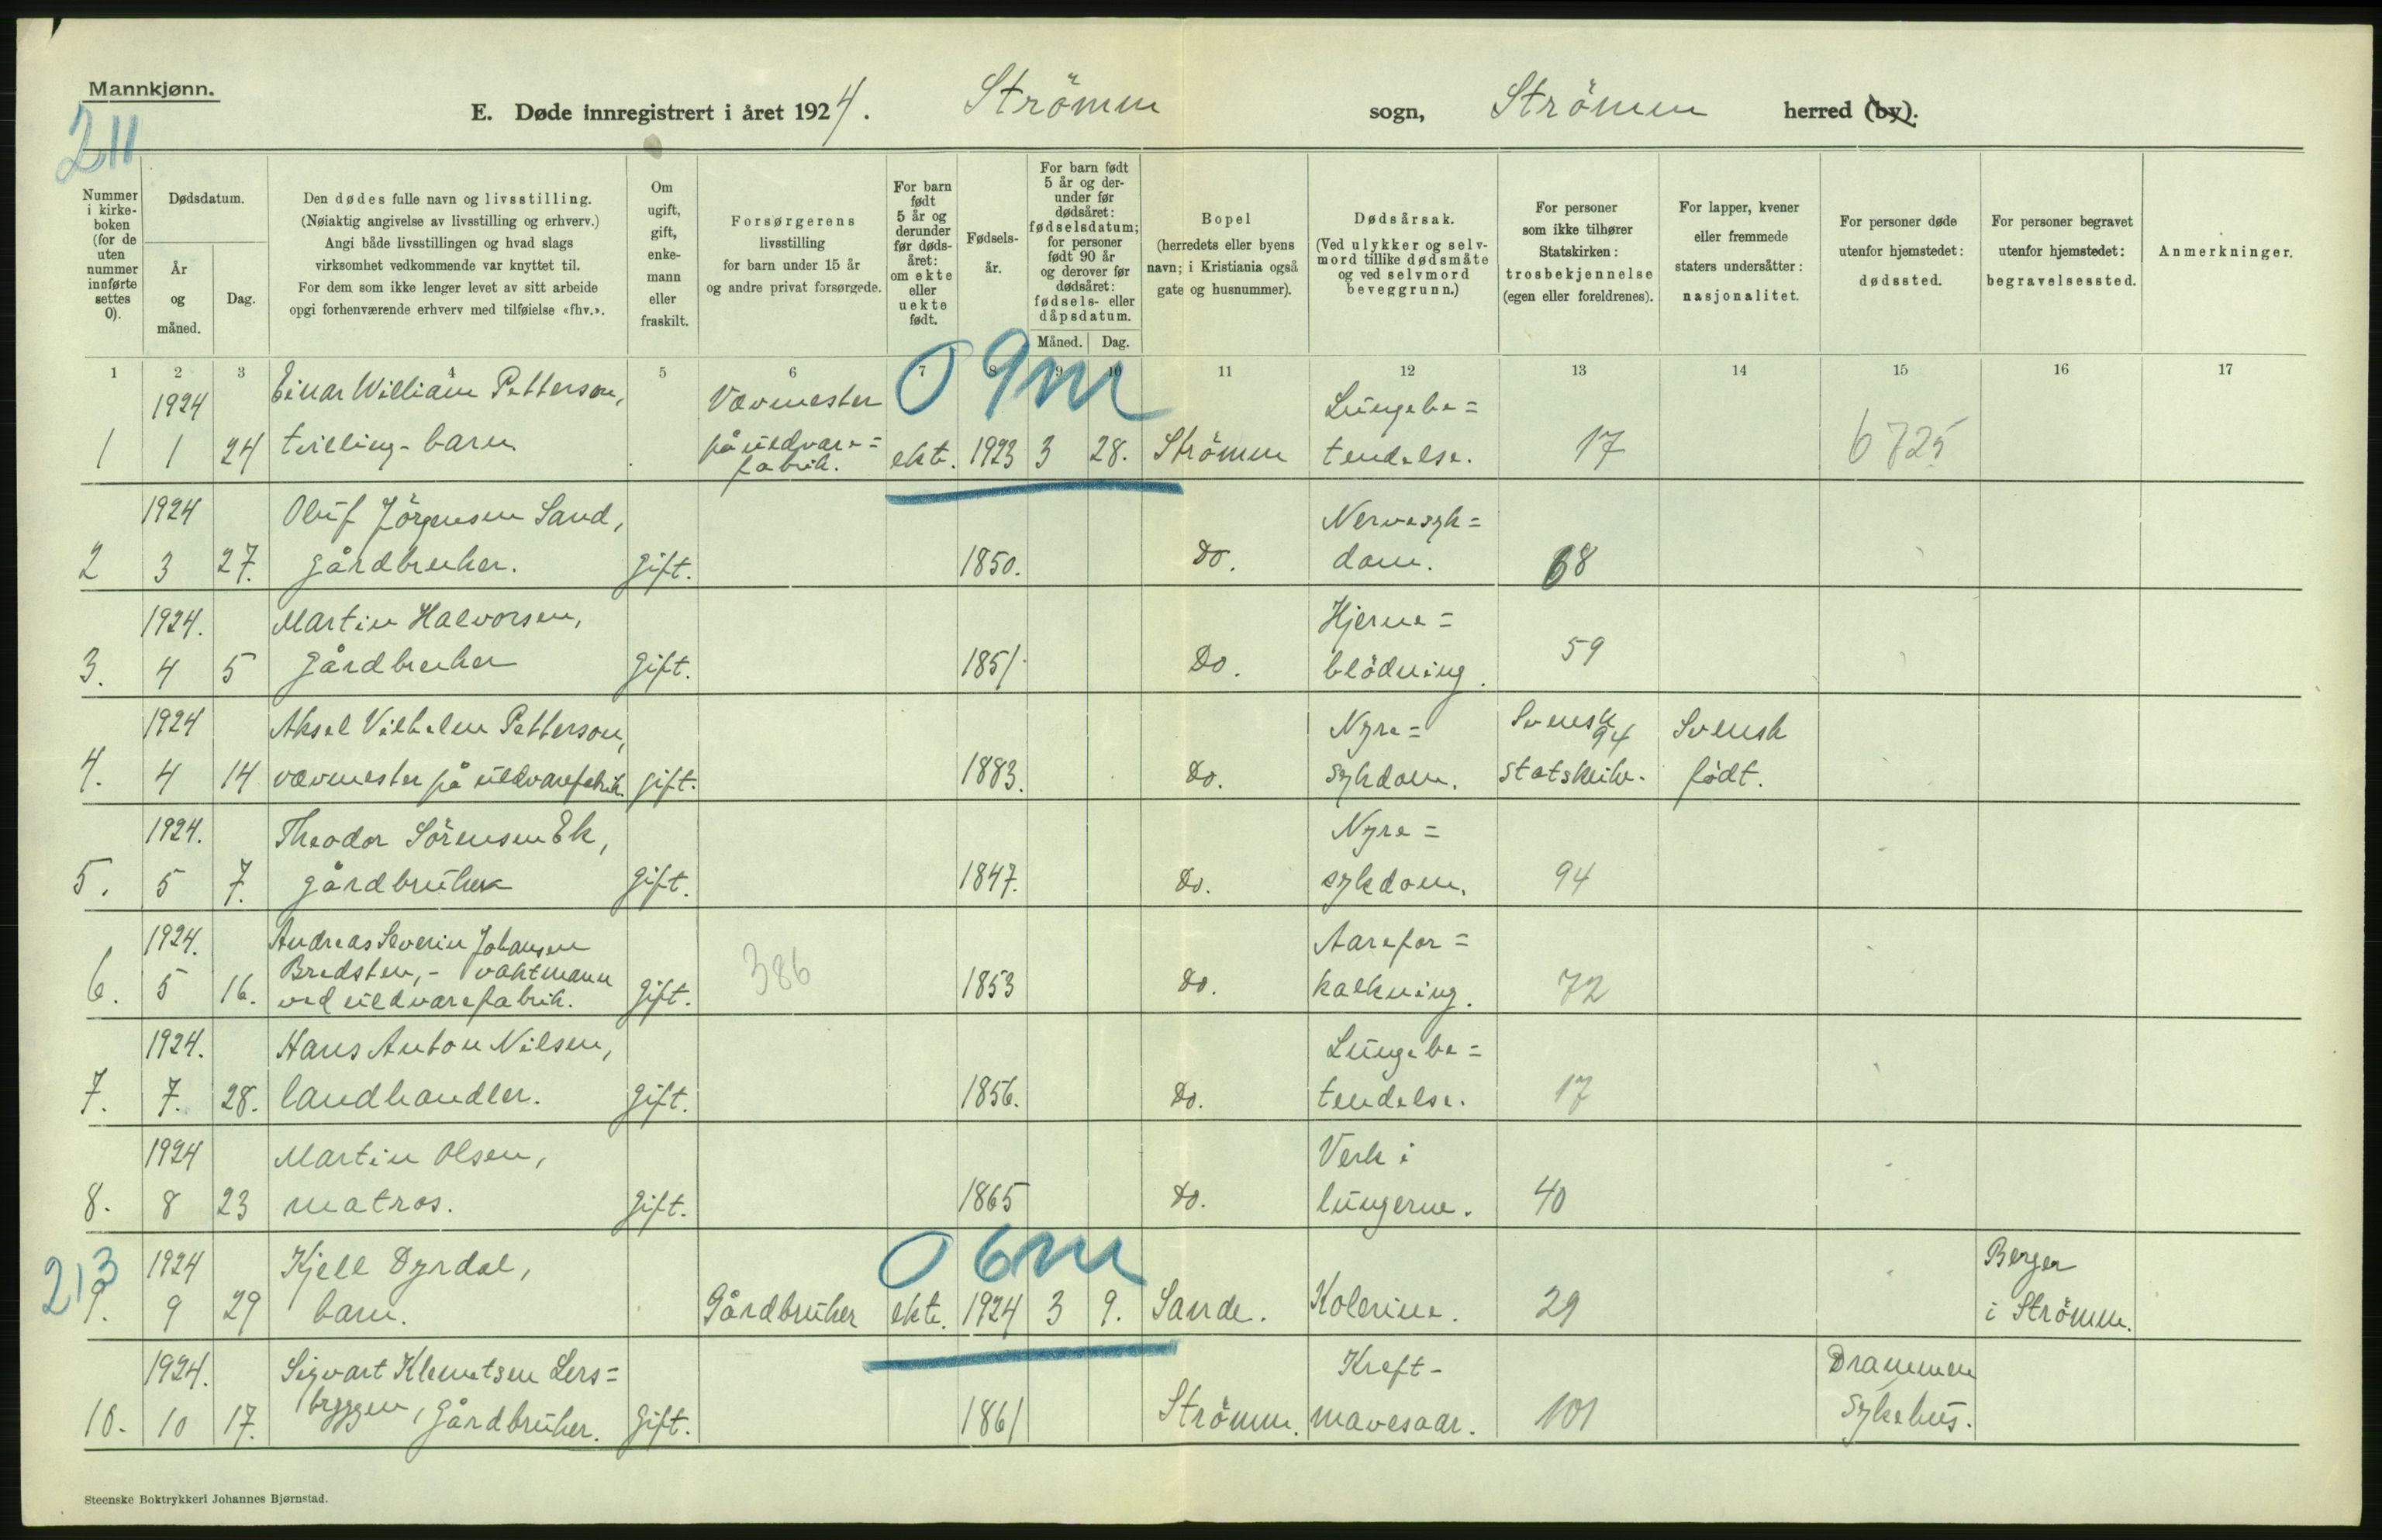 Mannkjønn.
E. Døde innregistrert i året 1924. Strömm sogn, Strömm herred (by).
211
Nummer i kirke- boken (for de uten nummer innførte settes 0).
Dødsdatum.
År og måned.
Dag.
Den dødes fulle navn og livsstilling.
(Nøiaktig angivelse av livsstilling og erhverv.)
Angi både livsstillingen og hvad slags
virksomhet vedkommende var knyttet til.
For dem som ikke lenger levet av sitt arbeide
opgi forhenværende erhverv med tilføielse «fhv.».
Om ugift, gift, enke- mann eller fraskilt.
Forsørgerens
livsstilling
for barn under 15 år
og andre privat forsørgede.
For barn født 5 år og derunder før døds- året: om ekte eller uekte født.
Fødsels- år.
For barn født 5 år og der- under før dødsåret: fødselsdatum; for personer født 90 år og derover før dødsåret: fødsels- eller dåpsdatum.
Måned. Dag.
Bopel
(herredets eller byens
navn; i Kristiania også
gate og husnummer).
Dødsårsak.
(Ved ulykker og selv-
mord tillike dødsmåte
og ved selvmord
beveggrunn.)
For personer
som ikke tilhører
Statskirken:
trosbekjennelse
(egen eller foreldrenes).
For lapper, kvener
eller fremmede
staters undersåtter:
nasjonalitet.
For personer døde
utenfor hjemstedet:
dødssted.
For personer begravet
utenfor hjemstedet:
begravelsessted.
Anmerkninger.
1 2 3 4 5 6 7 8 9 10 11 12 13 14 15 16 17
09m
1924 Einar William Petterson, Vævmester Lungebe=
1 1 24 tvilling-barn på uldvare= ekte. 1923 3 28. Strömm tendelse. 17 6725
fabrik.
1924 Oluf Jörgensen Sand, Nervesyk=
2 3 27. gårdbruker. gift. 1850. Do. dom. 68
1924. Martin Halvorsen, Hjerne=
3. 4 5 gårdbruker gift. 1851. Do. blödning. 59
1924 Aksel Vilhelm Petterson, Nyre= Svensk 94 Svensk
4. 4 14 vævmester på uldvarefabrik. gift. 1883. Do. sykdom. statskirke. født.
1924. Theodor Sörensen Ek, Nyre=
5. 5 7. gårdbruker gift. 1847. Do. sykdom. 94
1924. Andreas Severin Johansen Aarefor=
Bredsten,- vaktmann
6. 5 16. ved uldvarefabrik. gift. 386 1853 Do. kalkning. 72
1924. Hans Anton Nilsen, Lungebe=
7. 7. 28. landhandler. gift. 1856. Do. tendelse. 17
1924 Martin Olsen, Verk i
8. 8 23 matros. gift. 1865 Do. lungerne. 40
213 06m
1924 Kjell Dyrdal, Berger
9. 9 29 barn. Gårdbruker ekte. 1924 3 9. Sande. Kolerine. 29 i Strömm.
1924. Sigvart Klemetsen Lers= Kreft- Drammen
10. 10 17. bryggen, gårdbruker. gift. 1861 Strömm. mavesaar. 101 sykehus.
Steenske Boktrykkeri Johannes Bjørnstad.